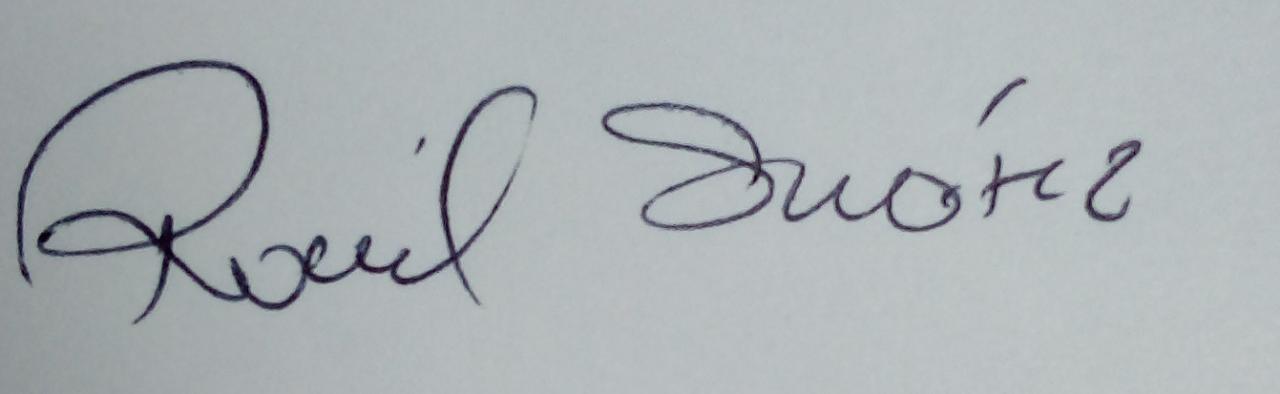 Raúl Suárez